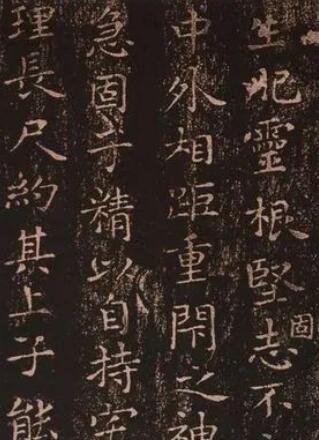 生肥靈根堅志不
固
中外相距重閇之神
急固子精以自持宅
理長尺約其上子能